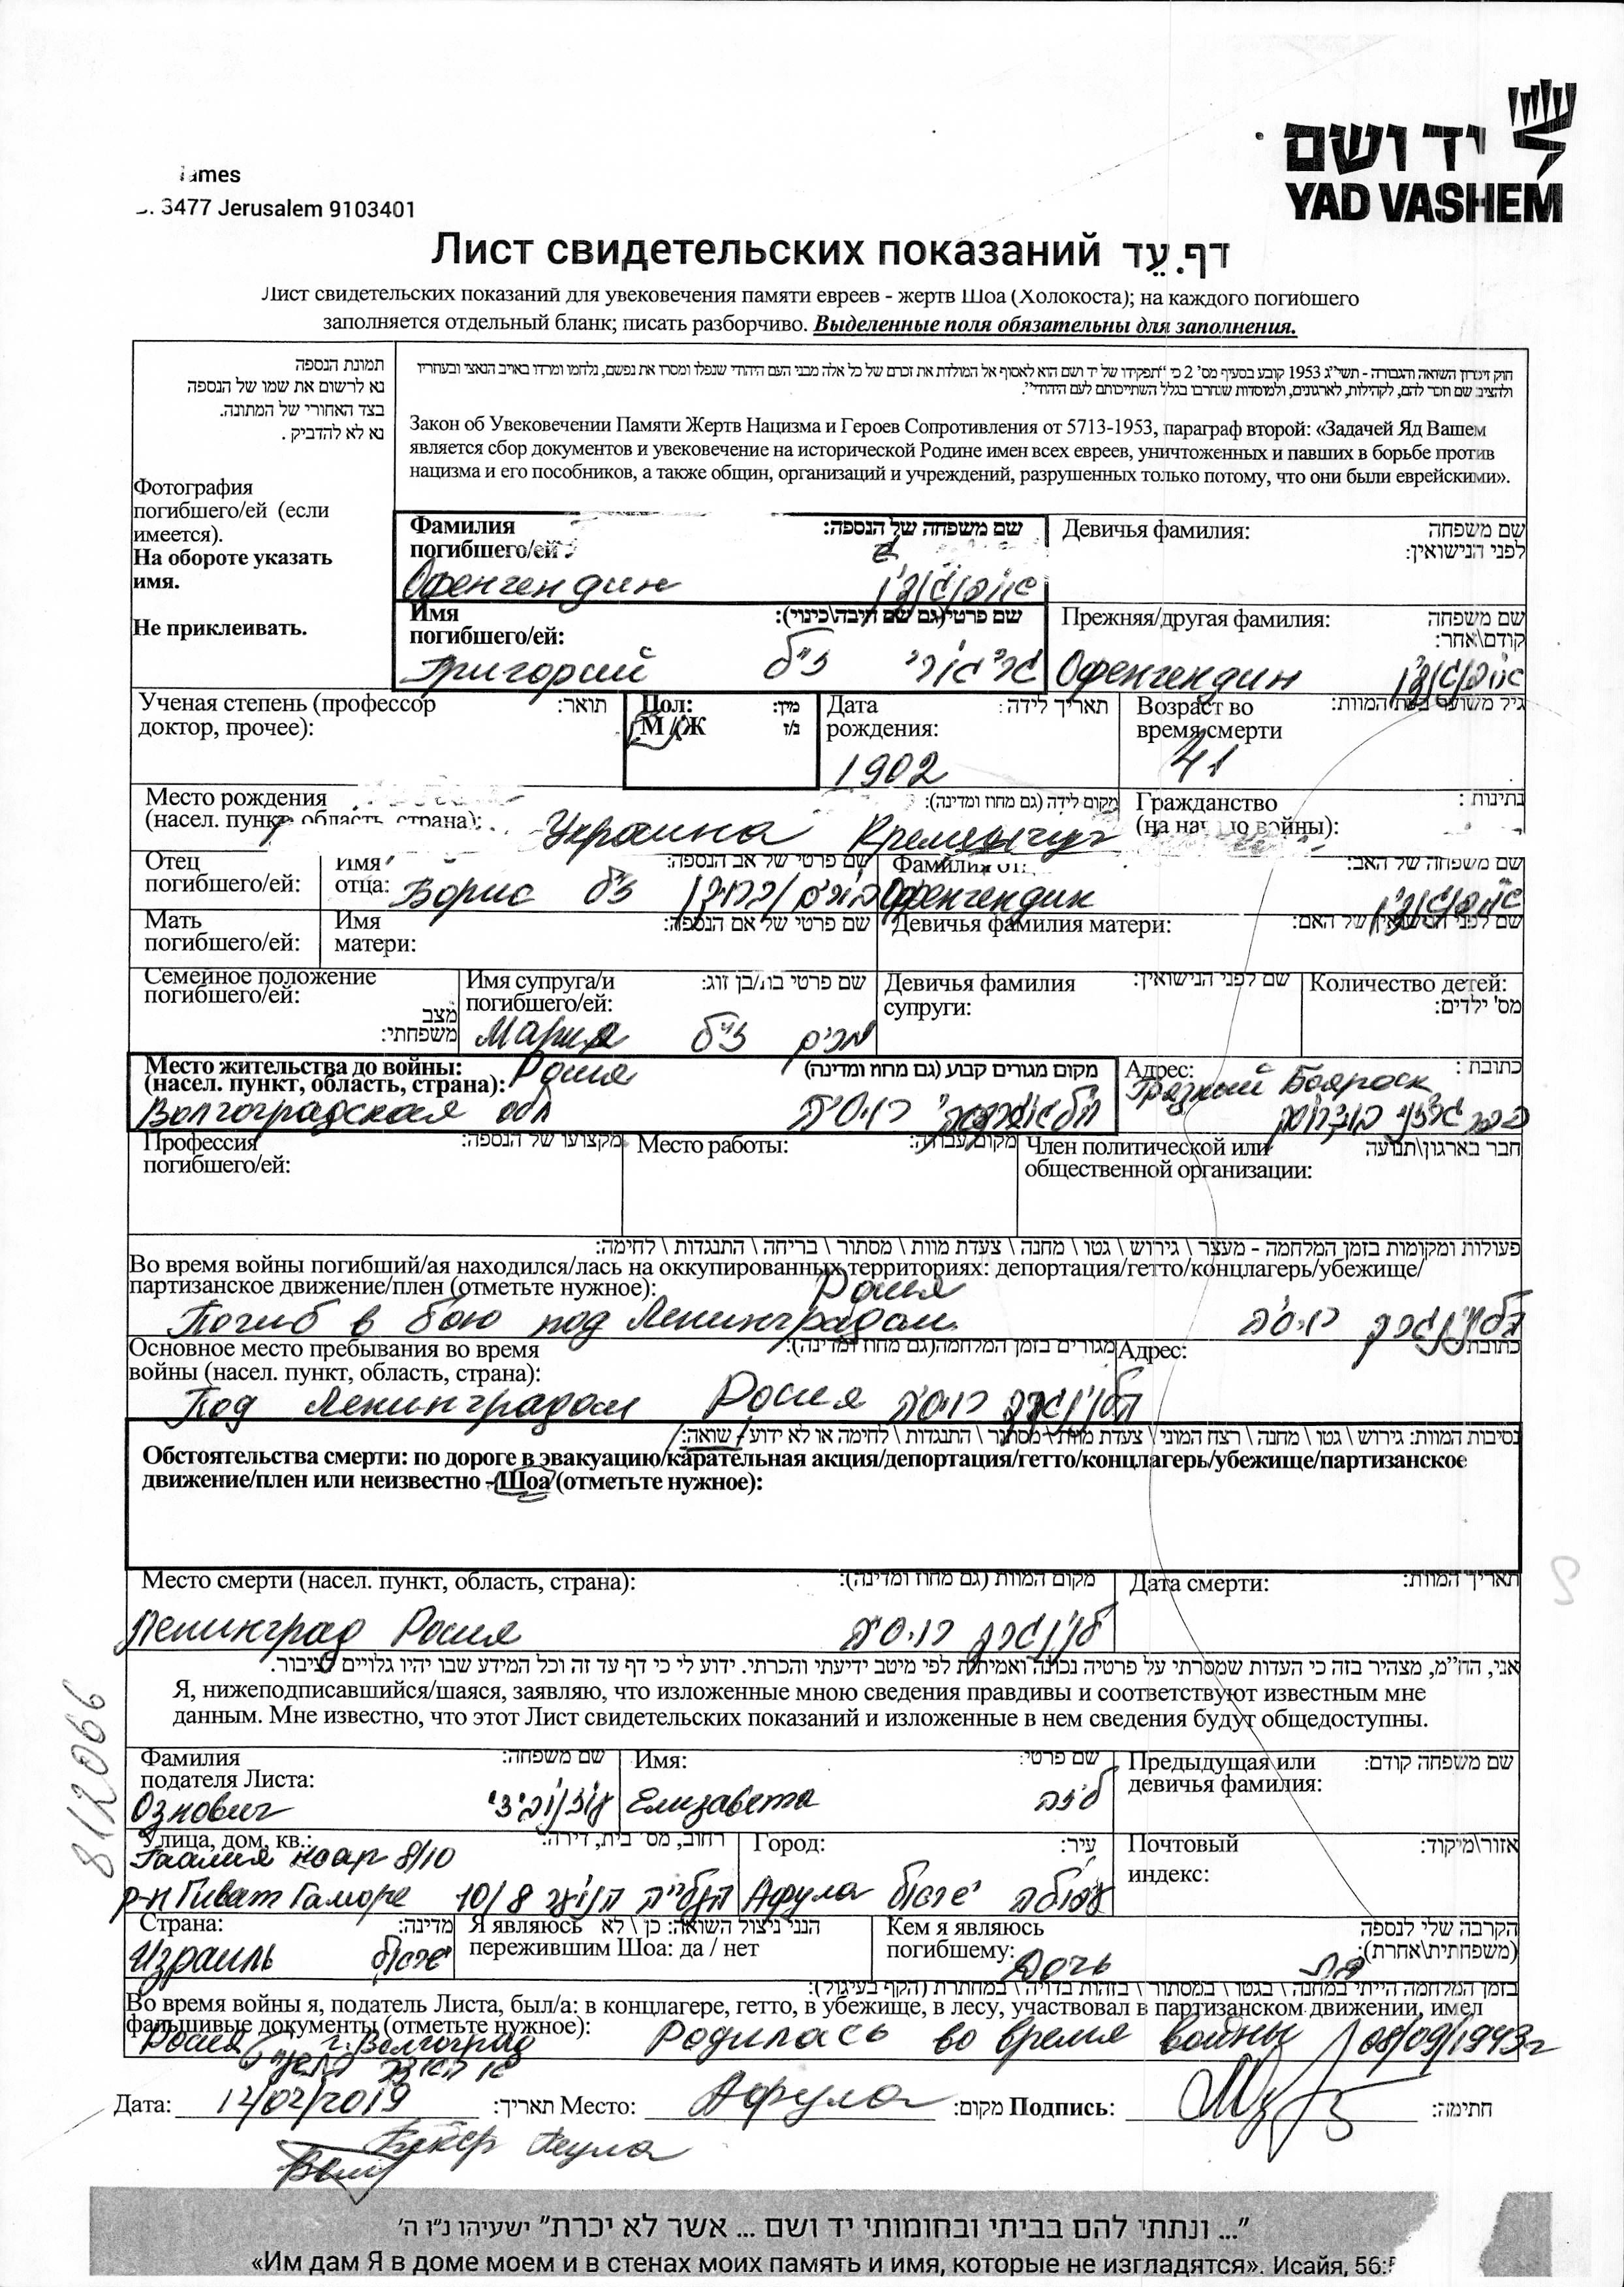 יד ושם
YAD VASHEM
ames
3477 Jerusalem 9103401
Лист свидетельских показаний דף עֵד
Лист свидетельских показаний для увековечения памяти евреев - жертв Шоа (Холокоста); на каждого погибшего
заполняется отдельный бланк; писать разборчиво. Выделенные поля обязательны для заполнения.
תמונת הנספה
נא לרשום את שמו של הנספה
בצד האחורי של התמונה.
נא לא להדביק.
Фотография
погибшего/ей (если
имеется).
На обороте указать
имя.
Не приклеивать.
חוק זיכרון השואה והגבורה - תשי"ג 1953 קובע בסעיף מס' 2 כי "תפקידו של יד ושם הוא לאסוף אל המולדת את זכרם של כל אלה מבני העם היהודי שנפלו ומסרו את נפשם, נלחמו ומרדו באויב הנאצי ובעוזריו
ולהציב שם וזכר להם, לקהילות, לארגונים, ולמוסדות שנחרבו בגלל השתייכותם לעם היהודי".
Закон об Увековечении Памяти Жертв Нацизма и Героев Сопротивления от 5713-1953, параграф второй: «Задачей Яд Вашем
является сбор документов и увековечение на исторической Родине имен всех евреев, уничтоженных и павших в борьбе против
нацизма и его пособников, а также общин, организаций и учреждений, разрушенных только потому, что они были еврейскими».
Фамилия погибшего/ей: שם משפחה של הנספה:
Офенгендин
Девичья фамилия: שם משפחה לפני הנישואין:
Имя погибшего/ей: שם פרטי (גם שם חיבה\כינוי):
Григорий גריגורי ז"ל
Прежняя/другая фамилия: שם משפחה קודם\אחר:
Офенгендин
Ученая степень (профессор доктор, прочее): תואר:
Пол: М / Ж מין: ז/נ
Дата рождения: תאריך לידה:
1902
Возраст во время смерти גיל משוער בעת המוות:
41
Место рождения (насел. пункт, область, страна): מקום לידה (גם מחוז ומדינה):
Украина Кременчуг
Гражданство (на начало войны): נתינות:
Отец погибшего/ей: Имя отца: שם פרטי של אב הנספה:
Борис ז"ל
שם משפחה של האב:
Офенгендин
Мать погибшего/ей: Имя матери: שם פרטי של אם הנספה:
Девичья фамилия матери: שם לפני הנישואין של האם:
Семейное положение погибшего/ей: מצב משפחתי:
Имя супруга/и погибшего/ей: שם פרטי בת/בן זוג:
Мария מרים ז"ל
Девичья фамилия супруги: שם לפני הנישואין:
Количество детей: מס' ילדים:
Место жительства до войны: (насел. пункт, область, страна): מקום מגורים קבוע (גם מחוז ומדינה)
Росия
Волгоградская обл רוסיה
Адрес: כתובת:
Грязный Бояроск
Профессия погибшего/ей: מקצועו של הנספה:
Место работы: מקום עבודה:
Член политической или общественной организации: חבר בארגון\תנועה
פעולות ומקומות בזמן המלחמה - מעצר \ גירוש \ גטו \ מחנה \ צעדת מוות \ מסתור \ בריחה \ התנגדות \ לחימה:
Во время войны погибший/ая находился/лась на оккупированных территориях: депортация/гетто/концлагерь/убежище/
партизанское движение/плен (отметьте нужное): Росия
Погиб в бою под Ленинградом רוסיה
Основное место пребывания во время войны (насел. пункт, область, страна): מגורים בזמן המלחמה (גם מחוז ומדינה):
Адрес: כתובת
Под Ленинградом Росия לנינגרד רוסיה
נסיבות המוות: גירוש \ גטו \ מחנה \ רצח המוני \ צעדת מוות \ מסתור \ התנגדות \ לחימה או לא ידוע - שואה:
Обстоятельства смерти: по дороге в эвакуацию/карательная акция/депортация/гетто/концлагерь/убежище/партизанское
движение/плен или неизвестно - Шоа (отметьте нужное):
Место смерти (насел. пункт, область, страна): מקום המוות (גם מחוז ומדינה):
Ленинград Росия לנינגרד רוסיה
Дата смерти: תאריך המוות:
אני, הח"מ, מצהיר בזה כי העדות שמסרתי על פרטיה נכונה ואמיתית לפי מיטב ידיעתי והכרתי. ידוע לי כי דף עד זה וכל המידע שבו יהיו גלויים לציבור.
Я, нижеподписавшийся/шаяся, заявляю, что изложенные мною сведения правдивы и соответствуют известным мне
данным. Мне известно, что этот Лист свидетельских показаний и изложенные в нем сведения будут общедоступны.
812066
Фамилия подателя Листа: שם משפחה:
Ознович
Имя: שם פרטי:
Елизавета ליזה
Предыдущая или девичья фамилия: שם משפחה קודם:
Улица, дом, кв.: רחוב, מס' בית, דירה:
Гаалия ноар 8/10
р-н Гиват Гаморе 10/8 העלייה הנוער
Город: עיר:
Афула עפולה ישראל
Почтовый индекс: אזור\מיקוד:
Страна: מדינה:
Израиль ישראל
Я являюсь пережившим Шоа: да / нет הנני ניצול השואה: כן \ לא
Кем я являюсь погибшему: הקרבה שלי לנספה (משפחתית\אחרת):
Дочь בת
בזמן המלחמה הייתי במחנה \ בגטו \ במסתור \ בזהות בדויה \ במחתרת (הקף בעיגול):
Во время войны я, податель Листа, был/а: в концлагере, гетто, в убежище, в лесу, участвовал в партизанском движении, имел
фальшивые документы (отметьте нужное):
Росия г. Волгоград Родилась во время войны 08/09/1943г
Дата: 12/02/2019 תאריך: Место: Афула מקום: Подпись: חתימה:
Бекер Геула
"... ונתתי להם בביתי ובחומותי יד ושם ... אשר לא יכרת" ישעיהו נ"ו ה'
«Им дам Я в доме моем и в стенах моих память и имя, которые не изгладятся». Исайя, 56:5